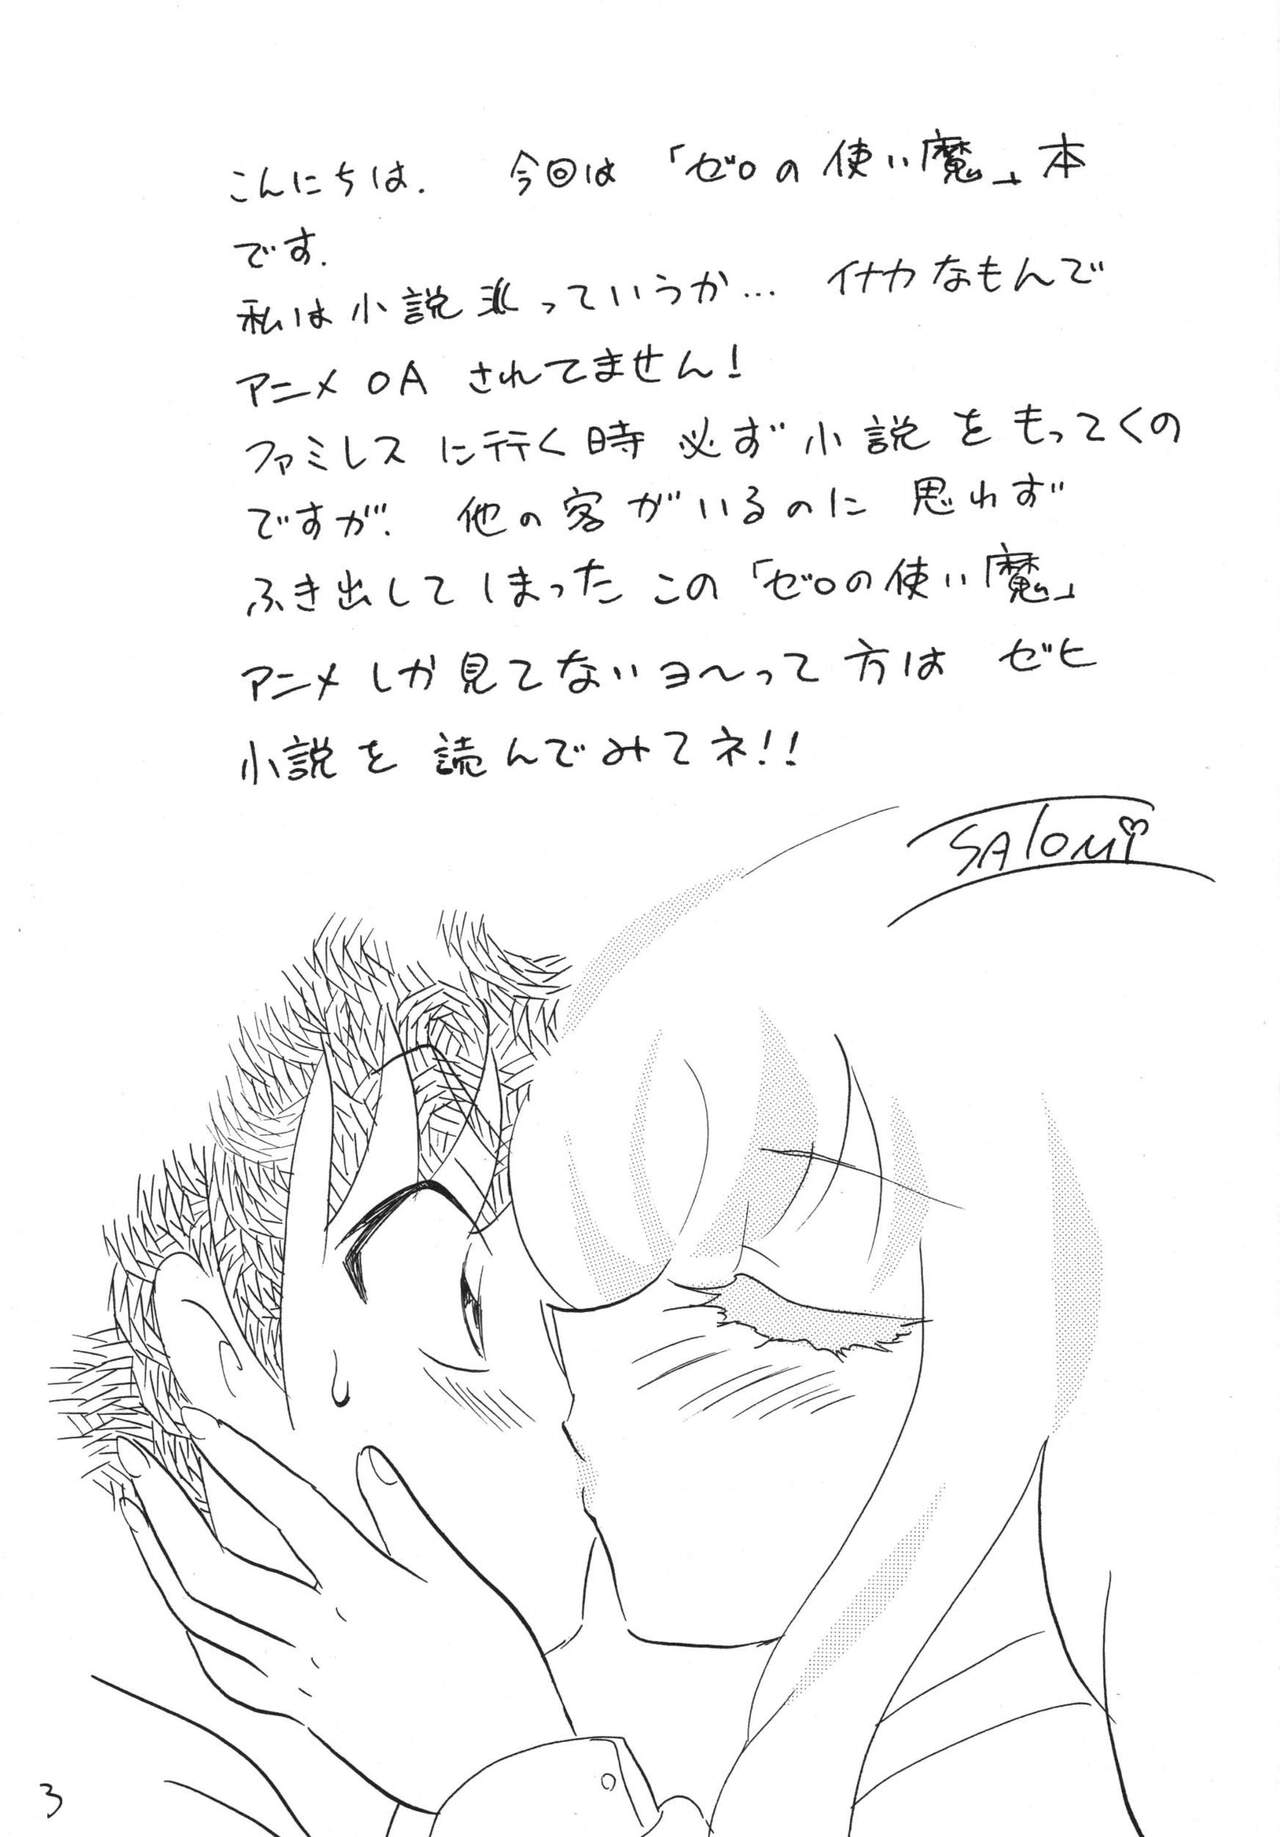 こんにちは. 今回は「ゼロの使い魔」本
です.
私は小説派っていうか... イナカなもんで
アニメOAされてません!
ファミレスに行く時必ず小説をもってくの
ですが. 他の客がいるのに思わず
ふき出してしまったこの「ゼロの使い魔」
アニメしか見てないヨ〜って方はゼヒ
小説を読んでみてネ!!
SAlOMi
3